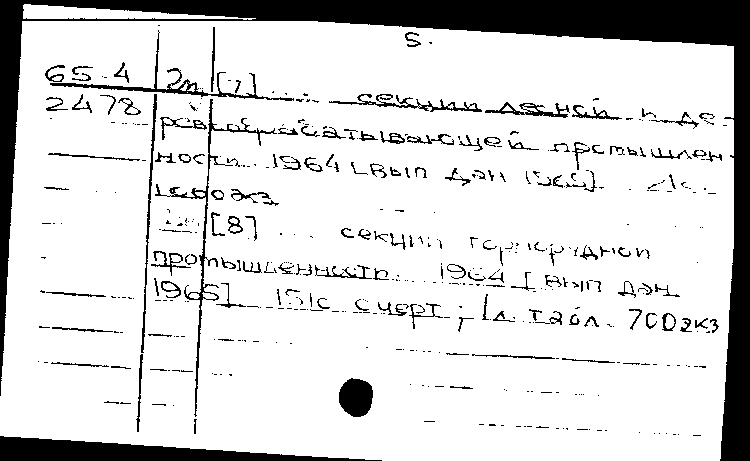 5.
65-4 2т. [7] ... секции лесной и де-
2478 ревообрабатывающей промышлен-
ности. 1964 [Вып дан 1965].
1600экз
[8] ... секции горнорудной
промышленности. 1964 [вып дан
1965]. 151с с черт; 1л. табл. 700экз